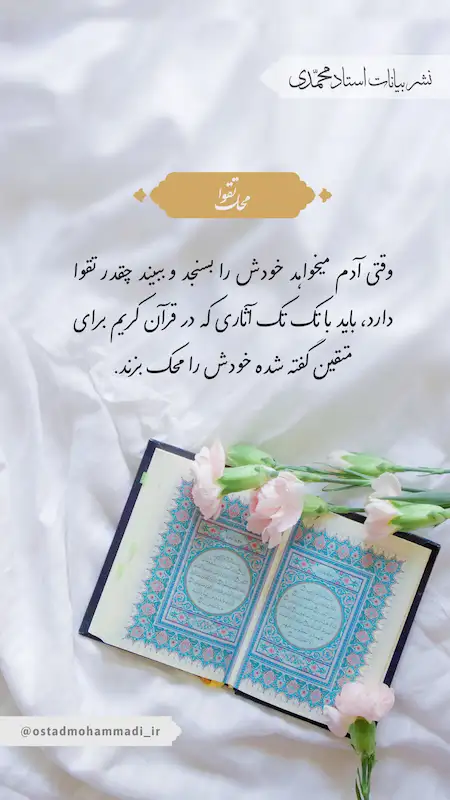 نشر بیانات استاد محمّدی
محک تقوا
وقتی آدم میخواهد خودش را بسنجد و ببیند چقدر تقوا
دارد، باید با تک تک آثاری که در قرآن کریم برای
متقین گفته شده خودش را محک بزند.
@ostadmohammadi_ir